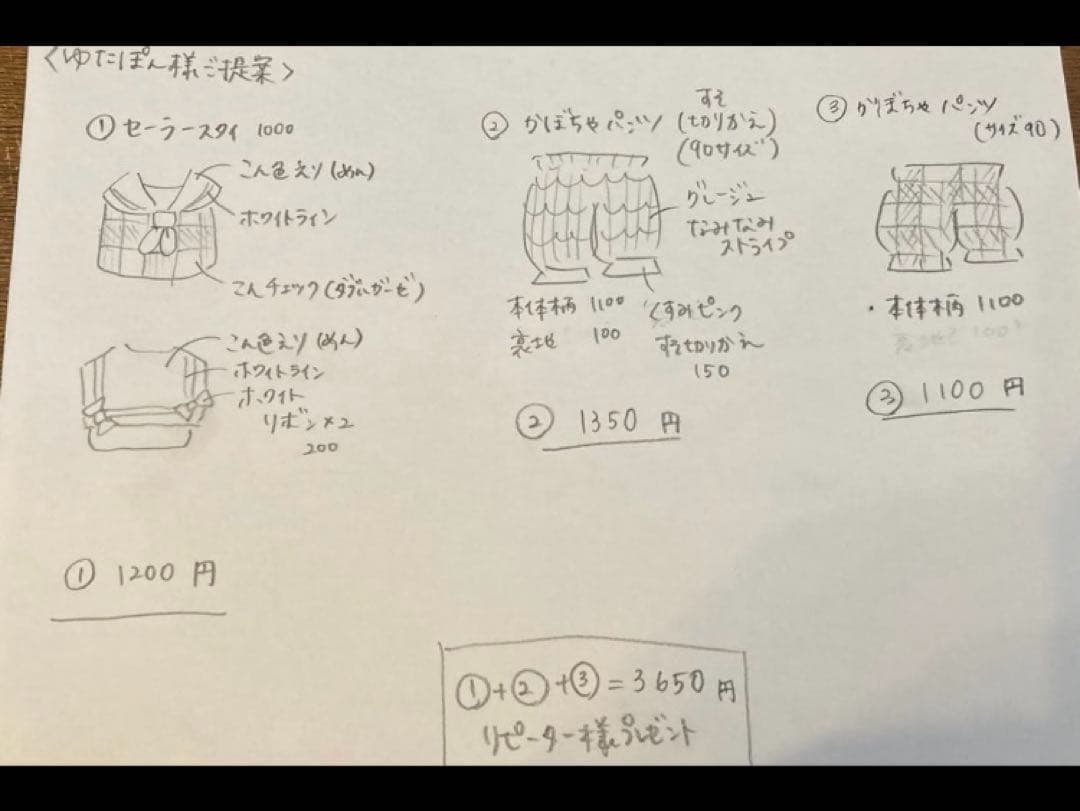 <ゆたぽん様ご提案>
① セーラースタイ 1000
こん色えり(めん)
ホワイトライン
こんチェック(ダブルガーゼ)
こん色えり(めん)
ホワイトライン
ホワイト
リボン×2
200
① 1200 円
② かぼちゃパンツ
すそ
(切りかえ)
(90サイズ)
グレージュ
なみなみ
ストライプ
本体柄 1100
裏地 100
くすみピンク
すそ切りかえ
150
② 1350 円
③ かぼちゃパンツ
(サイズ90)
・本体柄 1100
裏地 100
③ 1100 円
①+②+③=3650円
リピーター様プレゼント